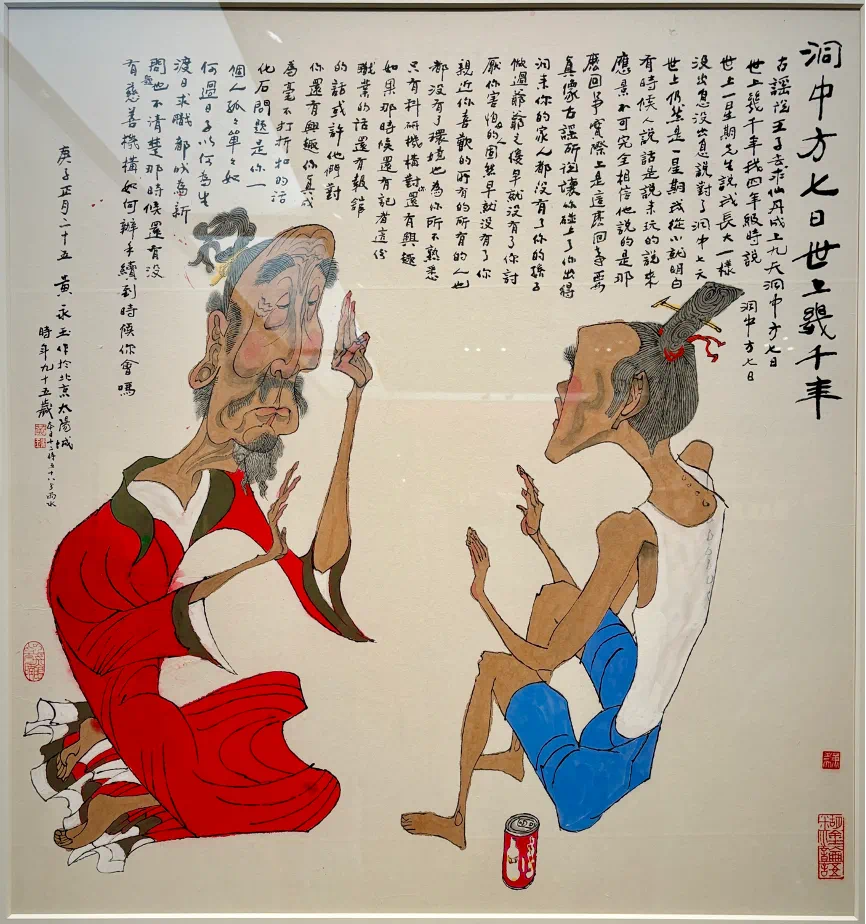 洞中方七日世上幾千年
古謠說王子去求仙丹成上九天洞中方七日
世上幾千年我四年級時說 洞中方七日
世上一星期先生說我長大一樣
沒出息沒出息說對了洞中七天
世上仍然是一星期我從小就明白
有時候人說話是說來玩的說來
應景不可完全相信他說的是那
麽回事實際上是這麽回事要
真像古謠所說讓你碰上了你出得
洞來你的家人都沒有了你的孫子
做過爺爺之後早就沒有了你討
厭你害怕的人固然早就沒有了你
親近你喜歡的所有的所有的人也
都沒有了環境也為你所不熟悉
只有科研機構對你還有興趣
如果那時候還有記者這份
職業的話還有報館
的話或許他們對
你還有興趣你真成
為毫不打折扣的活
化石問題是你一
個人孤々單々如
何過日子以何為生
渡日求職都成為新
問題也不清楚那時候還有沒
有慈善機構如何辦手續到時候你會嗎
庚子正月二十五 黃永玉作於北京太陽城
時年九十五歲